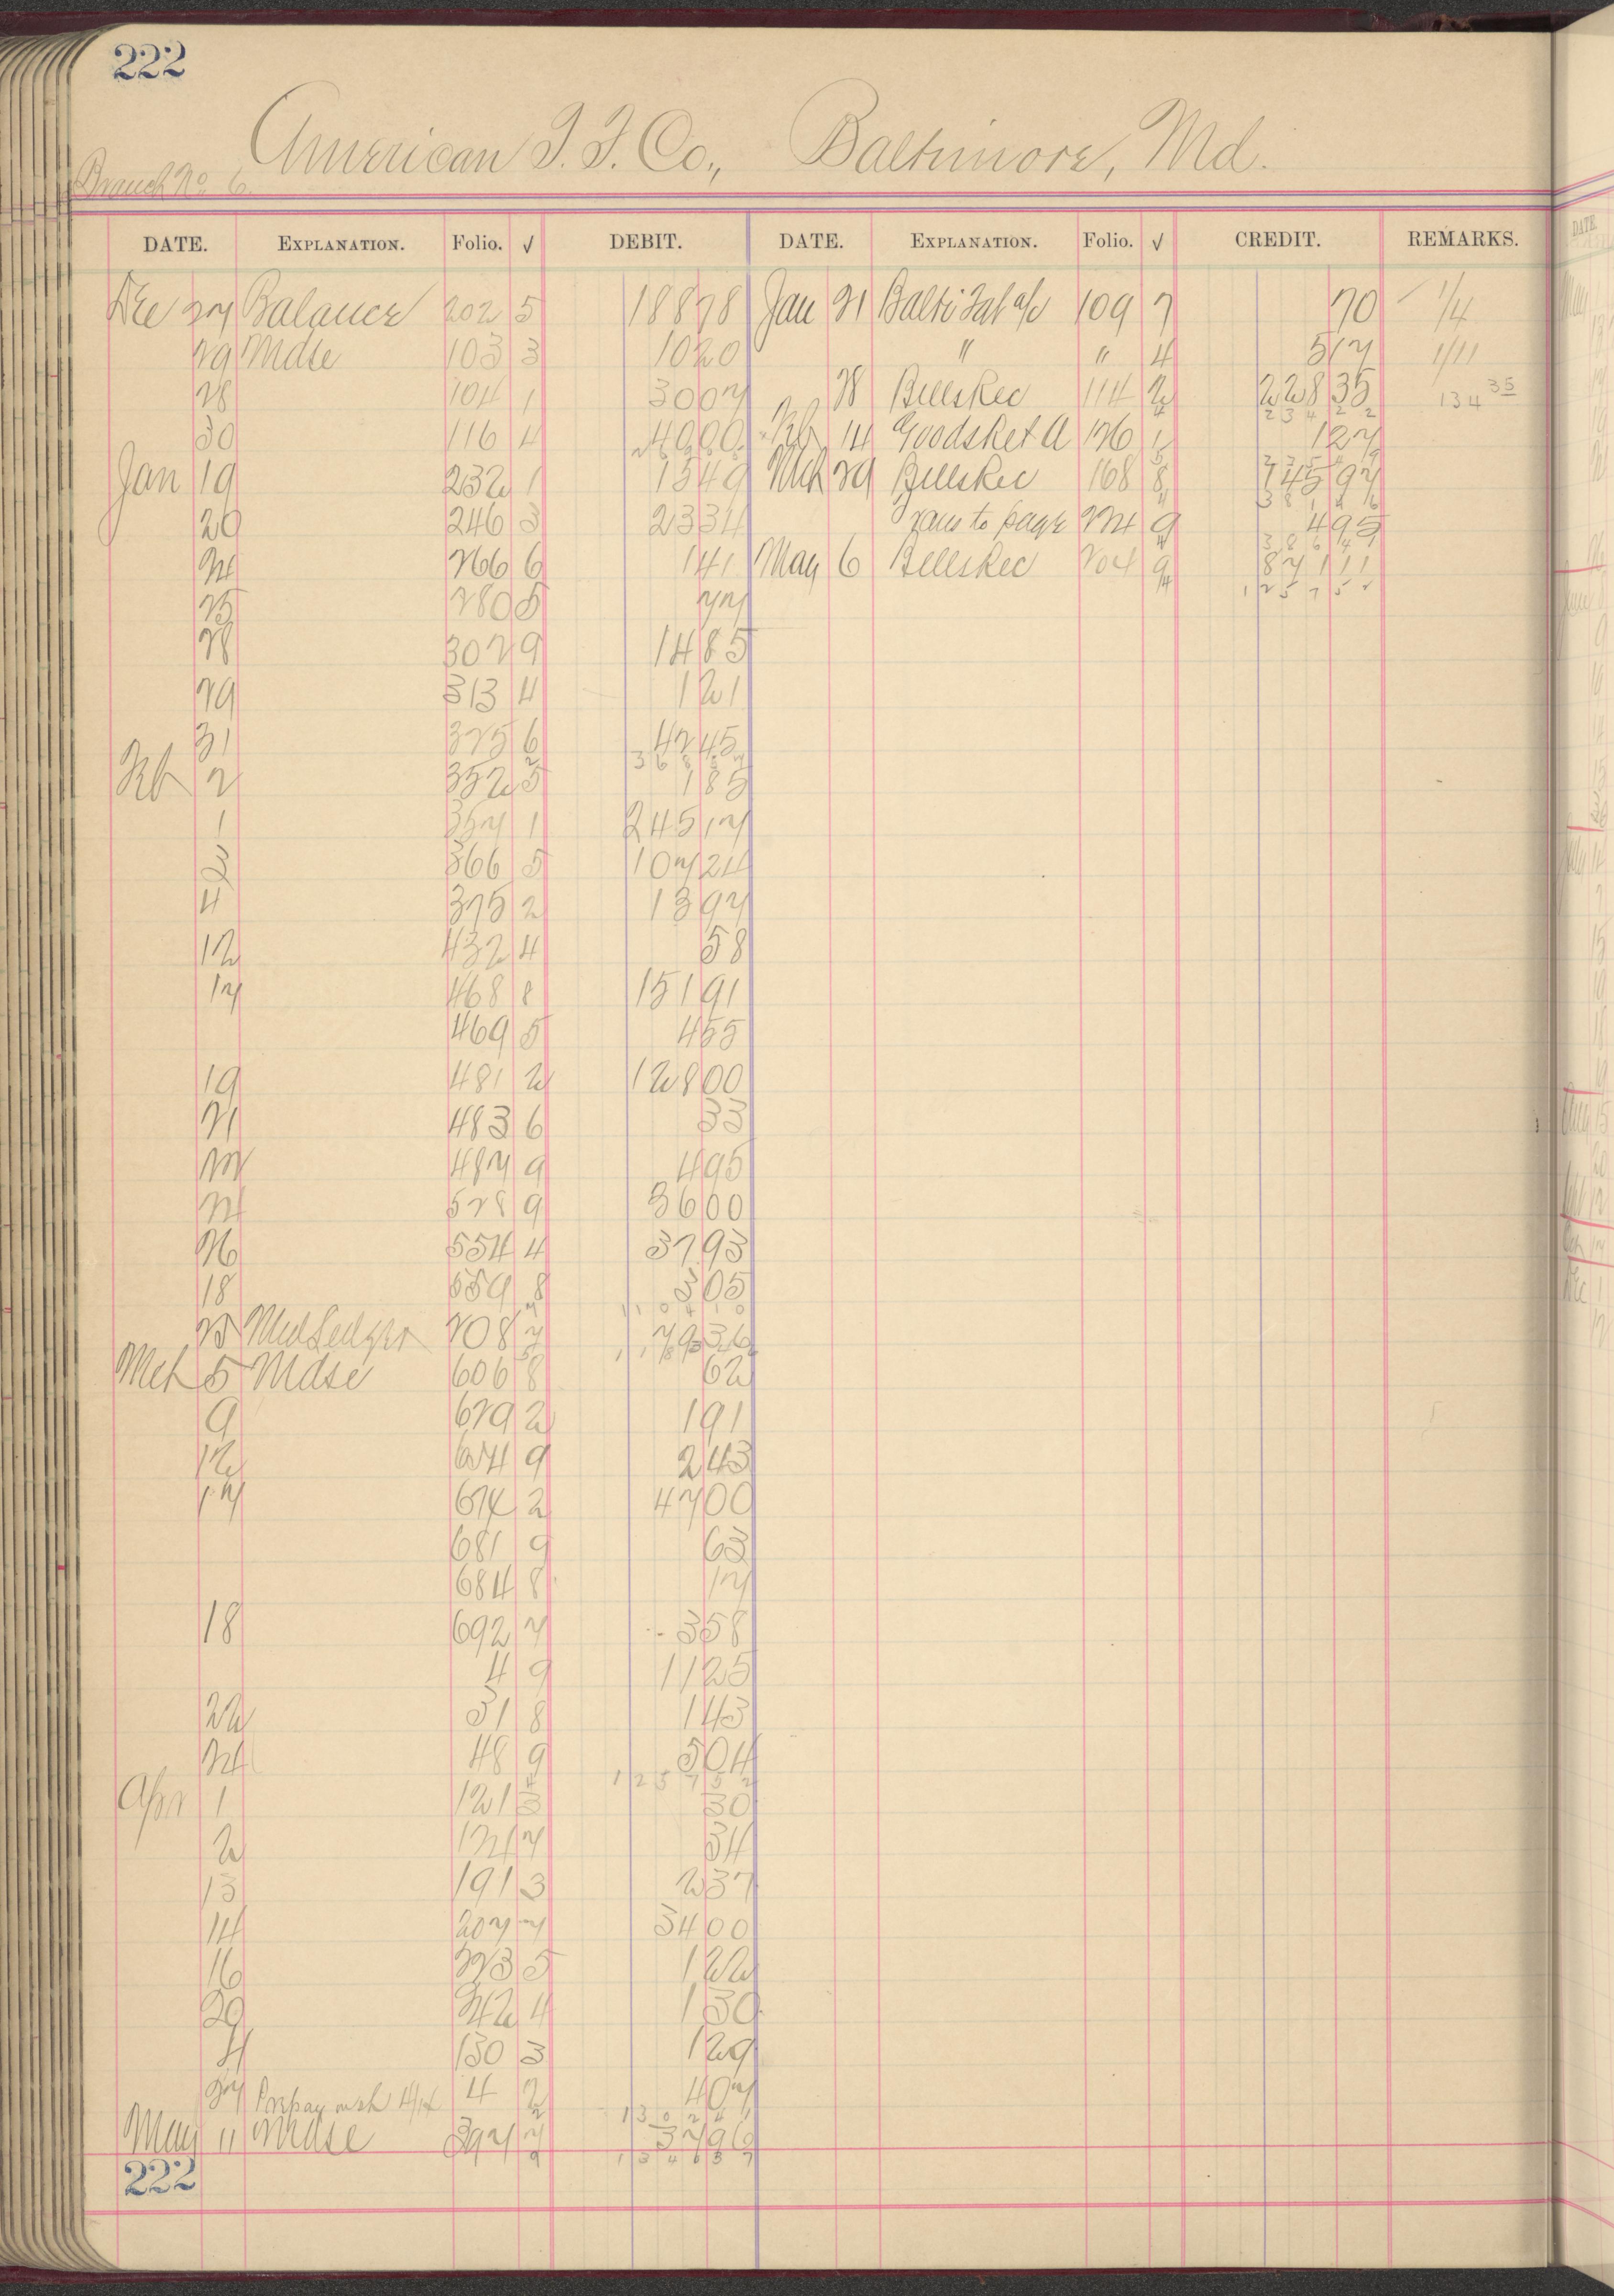 222
American I. F. Co., Baltimore, Md.
Branch No 6.
DATE. EXPLANATION. Folio. √ DEBIT. DATE. EXPLANATION. Folio. √ CREDIT. REMARKS.
Dec 27 Balance 202 5 188 78 Jan 21 109 7 70 1/4
29 Mdse 103 3 10 20 " " 4 5 17 1/11
28 104 1 30 07 28 Bills Rec 114 2 228 35 134 35
30 116 4 40 00 Feb 14 126 1 1 27
Jan 19 232 1 15 49 Mch 29 Bills Rec 168 8 745 97
20 246 3 23 34 Trans to page 224 9 4 95
24 266 6 1 41 May 6 Bills Rec 204 9 871 11
25 280 5 77
28 302 9 14 85
29 313 4 1 21
31 325 6 42 45
Feb 2 352 5 1 85
1 357 1 245 17
3 366 5 107 24
4 375 2 13 97
12 432 4 58
17 468 8 151 91
469 5 4 55
19 481 2 128 00
21 483 6 33
22 487 9 4 95
24 528 9 36 00
26 554 4 37 93
18 559 8 3 05
25 Mdse Ledger 208 7 79 36
Mch 5 Mdse 606 8 62
9 629 2 1 91
12 654 9 2 43
17 674 2 47 00
681 9 63
684 8 17
18 692 7 3 58
4 9 11 25
22 31 8 1 43
24 48 9 5 04
1 2 5 7 5 2
Apr 1 121 3 30
2 124 7 34
13 191 3 2 37
14 207 7 34 00
16 223 5 1 22
20 242 4 1 30
4 130 3 1 29
27 4 2 4 07
1 3 0 2 4 1
May 11 Mdse 397 7 37 96
1 3 4 0 3 7
222